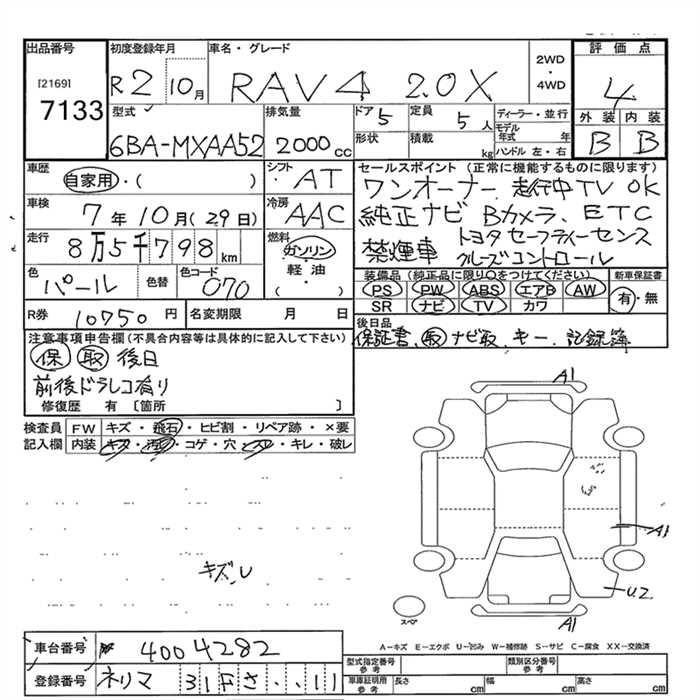 出品番号
[2169]
7133
初度登録年月
R2 10月
車名・グレード
RAV4 2.0X
2WD
・
4WD
評価点
4
外装 内装
B B
型式
6BA-MXAA52
排気量
2000cc
ドア 5
定員 5人
形状
積載 kg
ディーラー・並行
モデル年式 年
ハンドル 左・右
車歴
自家用・( )
シフト
AT
車検
7年10月(29日)
冷房
AAC
走行
8万5千798km
燃料
ガソリン
・
軽油
・
( )
色
パール
色替
色コード
070
R券 10750円
名変期限 月 日
セールスポイント (正常に機能するものに限ります)
ワンオーナー 走行中TV OK
純正ナビ Bカメラ、ETC
禁煙車 トヨタセーフティーセンス
クルーズコントロール
装備品 (純正品に限り○をつけてください)
PS PW ABS エアB AW
SR ナビ TV カワ
新車保証書
有・無
後日品
保証書、取 ナビ取、キー、記録簿
注意事項申告欄(不具合内容等は具体的に記入して下さい)
保 取 後日
前後ドラレコ有り
修復歴 有 [箇所 ]
検査員 FW キズ・飛石・ヒビ割・リペア跡・×要
記入欄 内装 キズ・汚れ・コゲ・穴・スレ・キレ・破レ
キズU
A1
A1
U2
A1
スペア
A-キズ E-エクボ U-凹み W-補修跡 S-サビ C-腐食 XX-交換済
車台番号 4004282
登録番号 ネリマ 31F さ ・・11
型式指定番号
参考
類別区分番号
参考
車庫証明用
参考
長さ cm
幅 cm
高さ cm